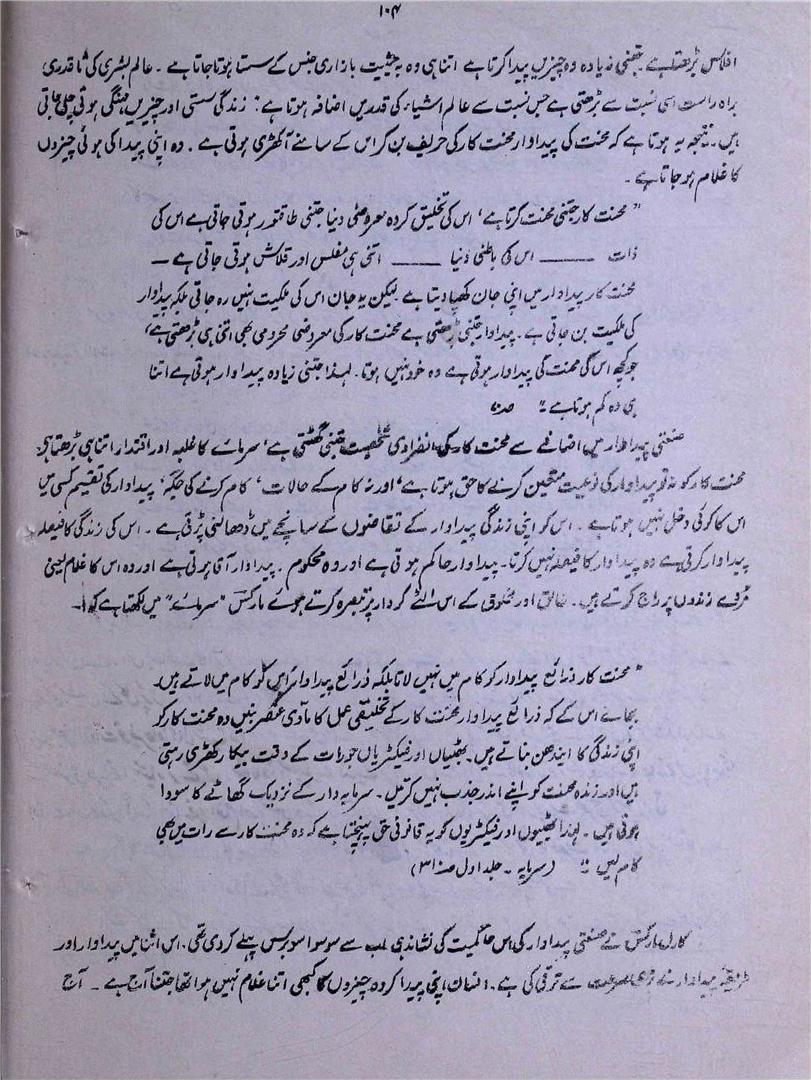 ۱۰۴
افلاس بڑھتا ہے۔ جتنی زیادہ وہ چیزیں پیدا کرتا ہے اتنا ہی وہ بہ حیثیت بازاری جنس کے سستا ہوتا جاتا ہے۔ عالم بشری کی ناقدری
براہ راست اسی نسبت سے بڑھتی ہے جس نسبت سے عالم اشیاء کی قدر میں اضافہ ہوتا ہے: زندگی سستی اور چیزیں مہنگی ہوتی چلی جاتی
ہیں۔ نتیجہ یہ ہوتا ہے کہ محنت کی پیداوار محنت کار کی حریف بن کر اس کے سامنے آ کھڑی ہوتی ہے۔ وہ اپنی پیدا کی ہوئی چیزوں
کا غلام ہو جاتا ہے۔
" محنت کار جتنی محنت کرتا ہے، اس کی تخلیق کردہ معروضی دنیا جتنی طاقتور ہوتی جاتی ہے اس کی
ذات ــــــ اس کی باطنی دنیا ــــــ اتنی ہی مفلس اور قلاش ہوتی جاتی ہے —
محنت کار پیداوار میں اپنی جان کھپا دیتا ہے لیکن یہ جان اس کی ملکیت نہیں رہ جاتی بلکہ پیداوار
کی ملکیت بن جاتی ہے۔ پیداوار جتنی بڑھتی ہے محنت کار کی معروضی محرومی بھی اتنی ہی بڑھتی ہے،
جو کچھ اس کی محنت کی پیداوار ہوتی ہے وہ خود نہیں ہوتا۔ لہذا جتنی زیادہ پیداوار ہوتی ہے اتنا
ہی وہ کم ہوتا ہے"
صنعتی پیداوار میں اضافے سے محنت کار کی انفرادی شخصیت جتنی گھٹتی ہے، سرمائے کا غلبہ اور اقتدار اتنا ہی بڑھتا ہے۔
محنت کار کو نہ تو پیداوار کی نوعیت متعین کرنے کا حق ہوتا ہے، اور نہ کام کے حالات، کام کرنے کی جگہ، پیداوار کی تقسیم کسی میں
اس کا کوئی دخل نہیں ہوتا ہے۔ اس کو اپنی زندگی پیداوار کے تقاضوں کے سانچے میں ڈھالنی پڑتی ہے۔ اس کی زندگی کا فیصلہ
پیداوار کرتی ہے وہ پیداوار کا فیصلہ نہیں کرتا۔ پیداوار حاکم ہوتی ہے اور وہ محکوم۔ پیداوار آقا ہوتی ہے اور وہ اس کا غلام یعنی
مردے زندوں پر راج کرتے ہیں۔ خالق اور مخلوق کے اس الٹے کردار پر تبصرہ کرتے ہوئے مارکس "سرمائے" میں لکھتا ہے کہ:-
" محنت کار ذرائع پیداوار کو کام میں نہیں لاتا بلکہ ذرائع پیداوار اس کو کام میں لاتے ہیں۔
بجائے اس کے کہ ذرائع پیداوار محنت کار کے تخلیقی عمل کا مادی عنصر بنیں وہ محنت کار کو
اپنی زندگی کا ایندھن بناتے ہیں۔ بھٹیاں اور فیکٹریاں جو رات کے وقت بیکار کھڑی رہتی
ہیں اور زندہ محنت کو اپنے اندر جذب نہیں کرتیں۔ سرمایہ دار کے نزدیک گھاٹے کا سودا
ہوتی ہیں۔ لہذا بھٹیوں اور فیکٹریوں کو یہ قانونی حق پہنچتا ہے کہ وہ محنت کار سے رات میں بھی
کام لیں" (سرمایہ۔ جلد اول
کارل مارکس نے صنعتی پیداوار کی اس حاکمیت کی نشاندہی اب سے سو سوا سو برس پہلے کر دی تھی۔ اس اثنا میں پیداوار اور
طریقۂ پیداوار نے بڑی سرعت سے ترقی کی ہے۔ انسان اپنی پیدا کردہ چیزوں کا کبھی اتنا غلام نہیں ہوا تھا جتنا آج ہے۔ آج